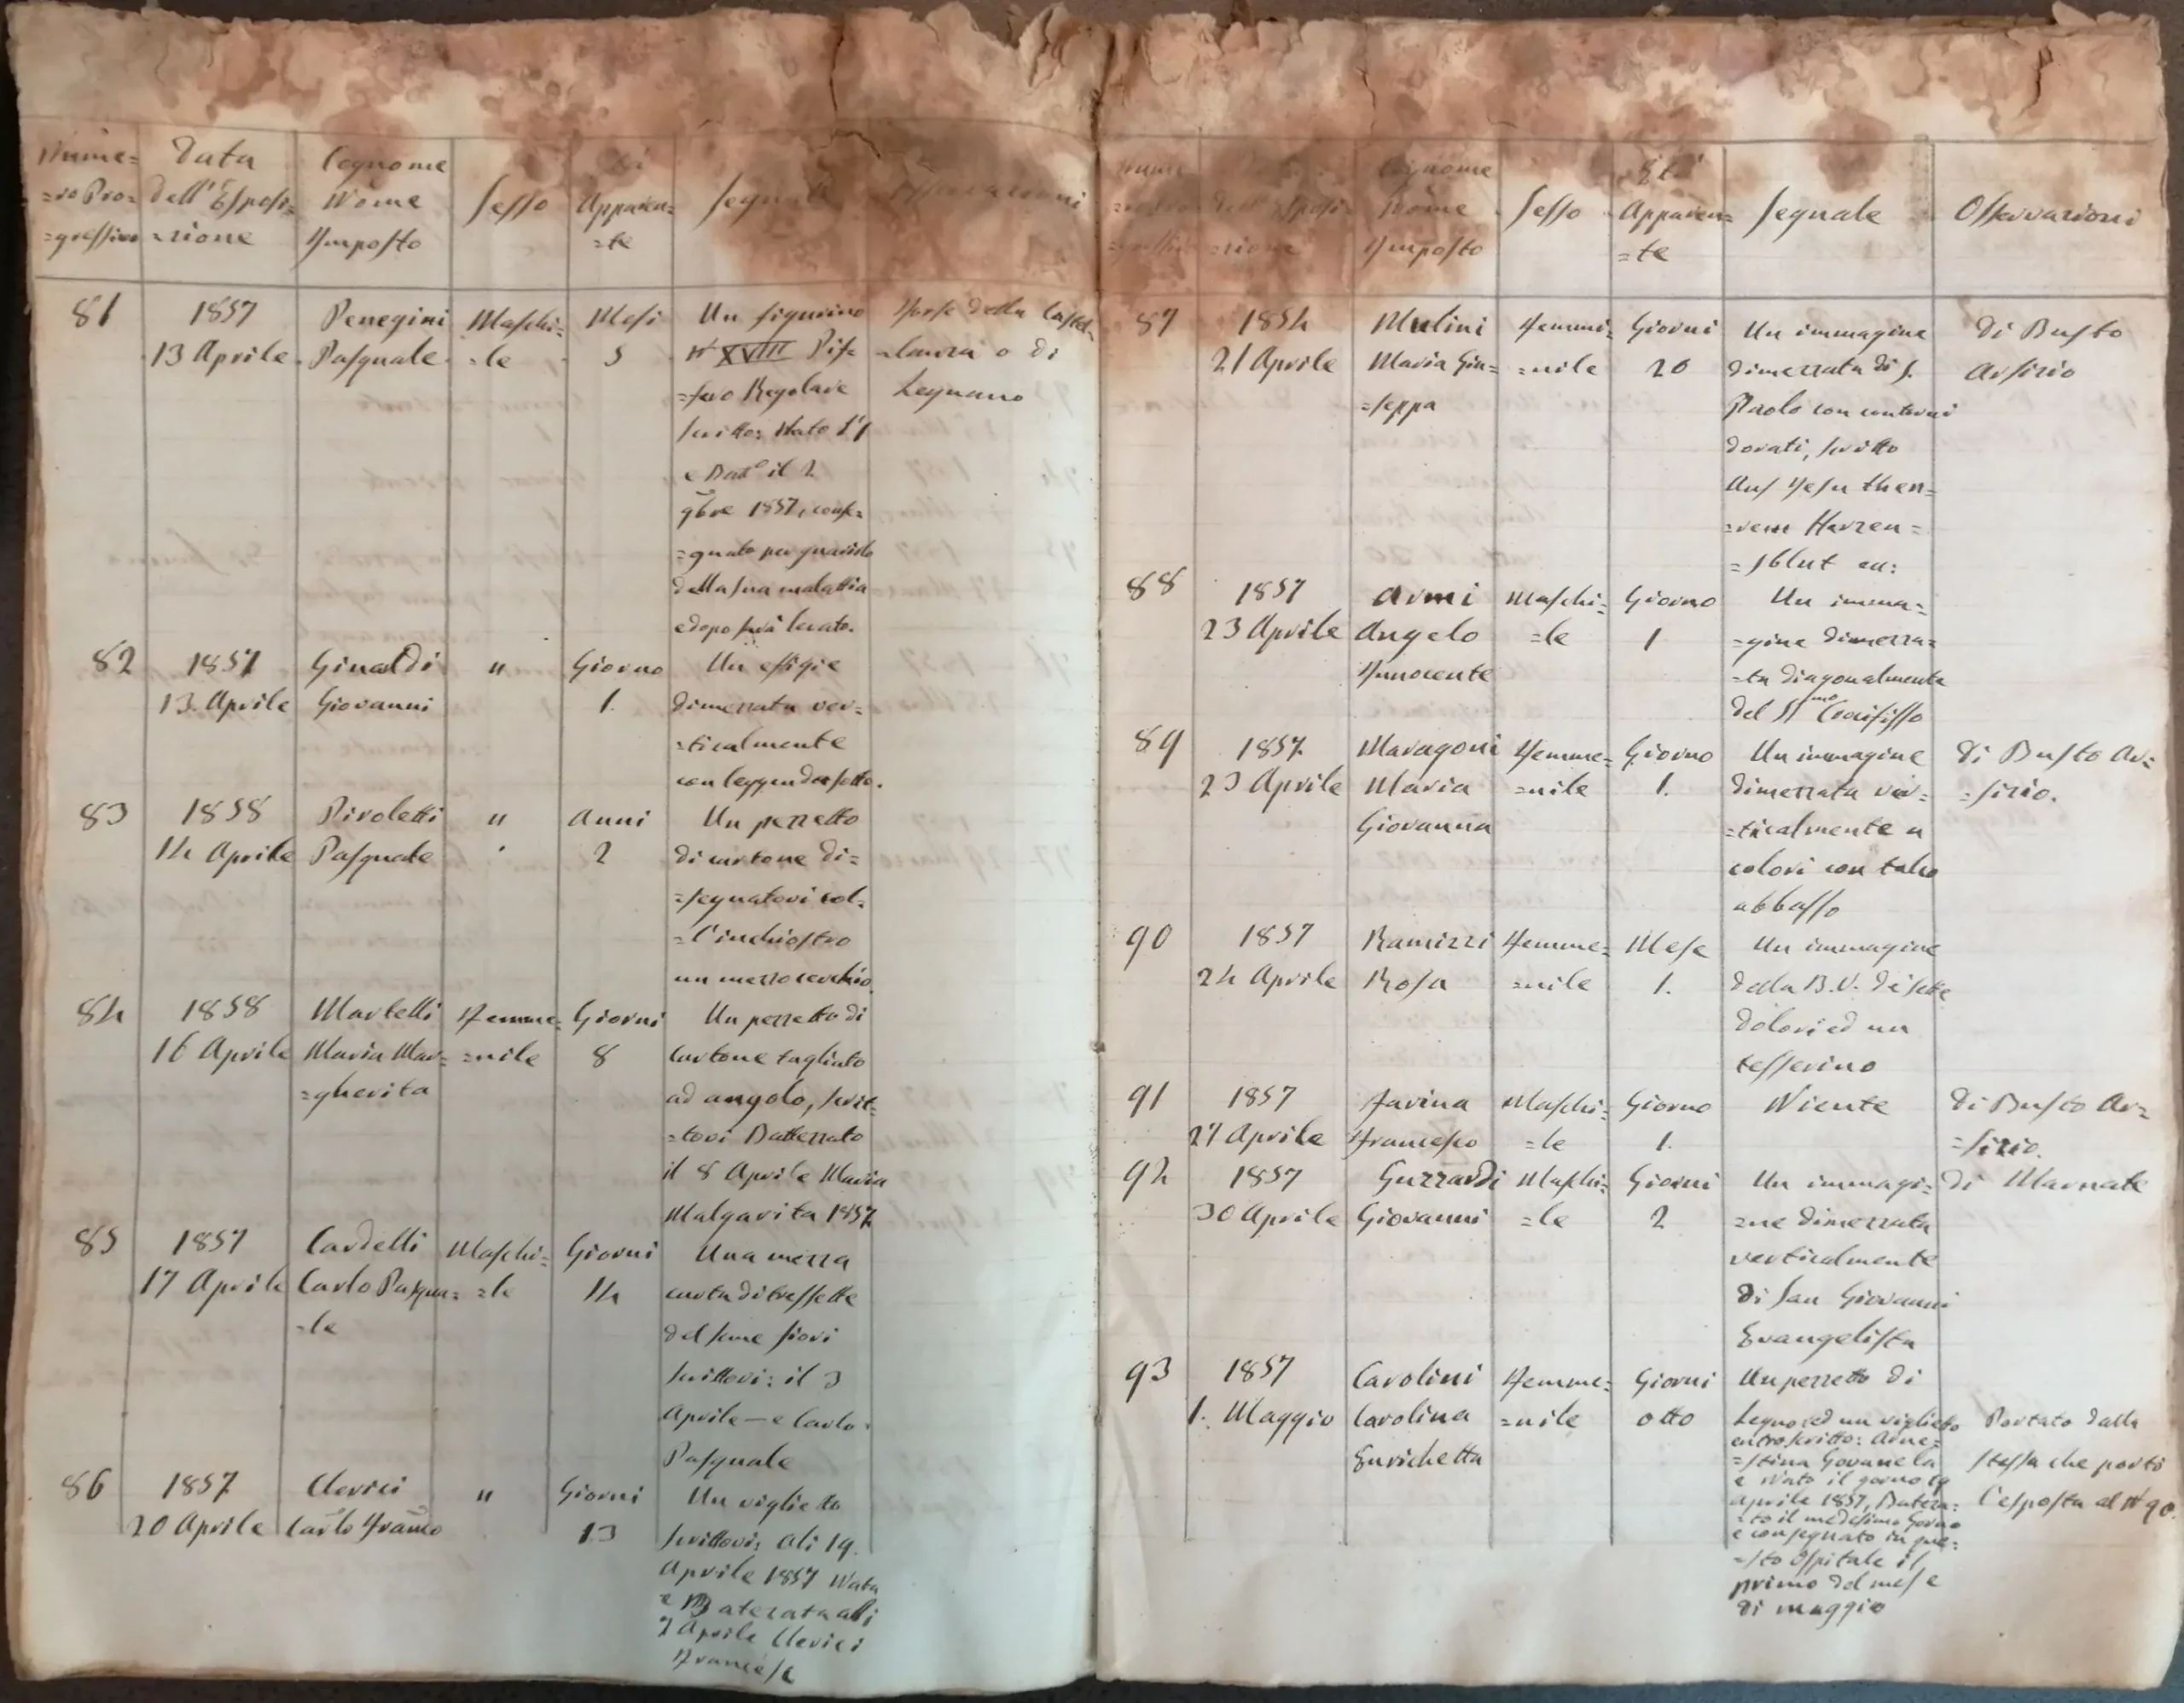 Nume=
=ro Pro=
=gressivo
Data
dell'Esposi=
=zione
Cognome
Nome
Imposto
Sesso
Età
Apparen=
=te
Segnale
Osservazioni
81
1857
13 Aprile
Penegini
Pasquale
Maschi=
=le
Mesi
5
Un figurino
N° XVIII Pif=
=fero Regolare
scritto: Nato l'1
e Bat° il 2
9bre 1857, conse=
=gnato per guarirlo
della sua malattia
e dopo sarà levato.
Forse della Castel=
=lanza o di
Legnano
82
1857
13 Aprile
Ginaldi
Giovanni
"
Giorno
1.
Un effigie
dimezzata ver=
=ticalmente
con leggenda sotto.
83
1858
14 Aprile
Piroletti
Pasquale
"
Anni
2
Un pezzetto
di cartone di=
=segnatovi col=
=l'inchiostro
un mezzo cerchio
84
1858
16 Aprile
Martelli
Maria Mar=
=gherita
Femme=
=nile
Giorni
8
Un pezzetto di
cartone tagliato
ad angolo, scrit=
=tovi Battezzato
il 8 Aprile Maria
Malgarita 1857
85
1857
17 Aprile
Cardelli
Carlo Pasqua=
=le
Maschi=
=le
Giorni
14
Una mezza
carta di tressette
del seme fiori
scrittovi: il 3
Aprile — e Carlo
Pasquale
86
1857
20 Aprile
Clerici
Carlo Franco
"
Giorni
13
Un viglietto
scrittovi: Ali 19.
Aprile 1857 Nata
e Baterata alli
7 Aprile Clerici
Francesc
Nume=
=ro Pro=
=gressivo
Data
dell'Esposi=
=zione
Cognome
Nome
Imposto
Sesso
Età
Apparen=
=te
Segnale
Osservazioni
87
1854
21 Aprile
Mulini
Maria Giu=
=seppa
Femmi=
=nile
Giorni
20
Un immagine
dimezzata di S.
Paolo con contorni
dorati, scritto
Auf Jesu theu=
=rem Herzen=
=sblut en:
di Busto
Arsizio
88
1857
23 Aprile
Armi
Angelo
Innocente
Maschi=
=le
Giorno
1
Un imma=
=gine dimezza=
=ta diagonalmente
del SSmo Crocifisso
89
1857
23 Aprile
Maragoni
Maria
Giovanna
Femme=
=nile
Giorno
1.
Un immagine
dimezzata ver=
=ticalmente a
colori con talco
abbasso
di Busto Ar=
=sizio.
90
1857
24 Aprile
Ramizzi
Rosa
Femme=
=nile
Mese
1.
Un immagine
della B.V. di sette
dolori ed un
tesserino
91
1857
27 Aprile
Farina
Francesco
Maschi=
=le
Giorno
1.
Niente
di Busto Ar=
=sizio.
92
1857
30 Aprile
Guzzardi
Giovanni
Maschi=
=le
Giorni
2
Un immagi=
=ne dimezzata
verticalmente
di San Giovanni
Evangelista
di Marnate
93
1857
1. Maggio
Carolini
Carolina
Enrichetta
Femme=
=nile
Giorni
otto
Un pezzetto di
Legno, ed un viglietto
entroscritto: Arne=
=stina Govanela
e Nato il gorno 19
Aprile 1857, Batera=
=to il medesimo Gorno
e consegnato in que=
=sto Ospitale il
primo del mese
di maggio
Portato dalla
stessa che portò
l'esposta al N° 90.